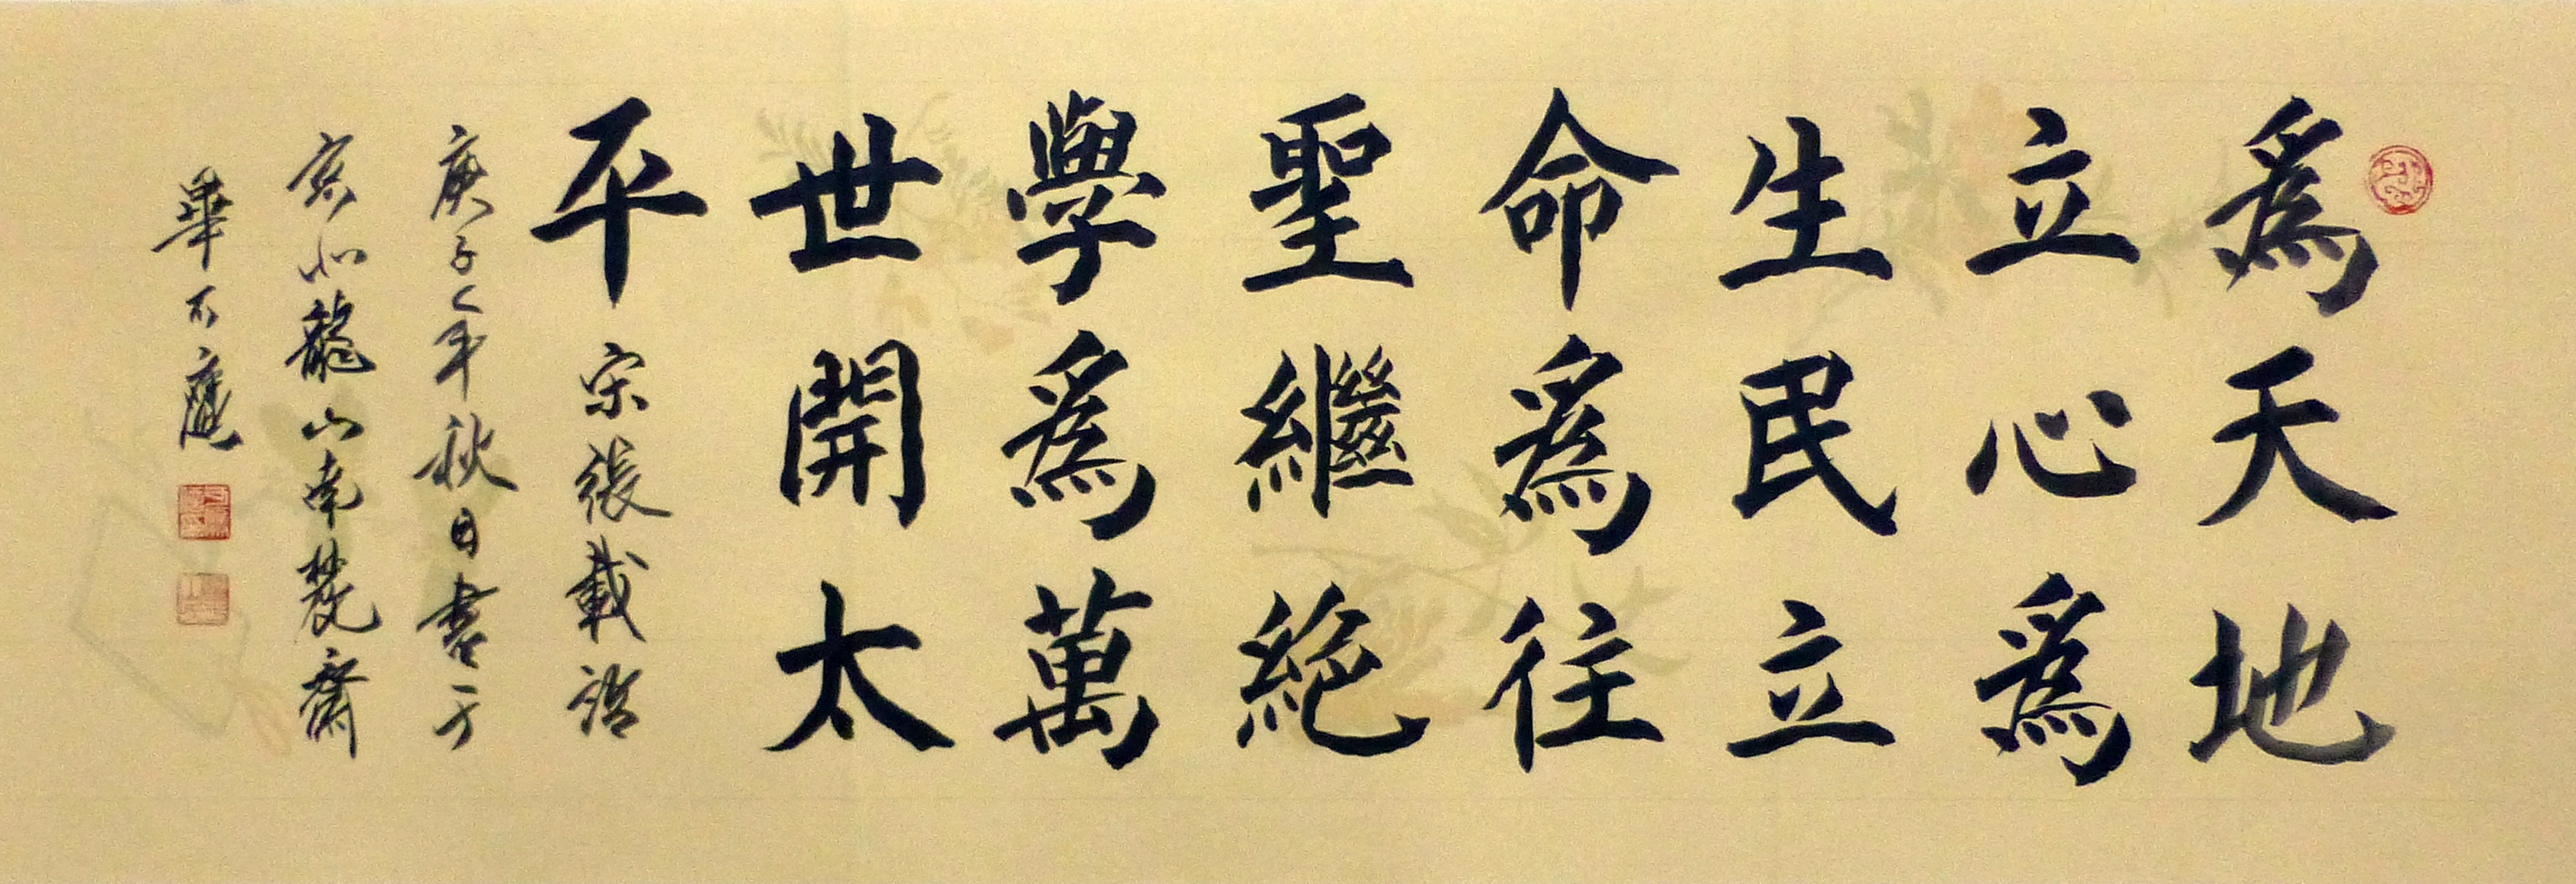 爲天地
立心爲
生民立
命爲往
聖繼絶
學爲萬
世開太
平 宋張載語
庚子年秋日書于
龍山南麓齋